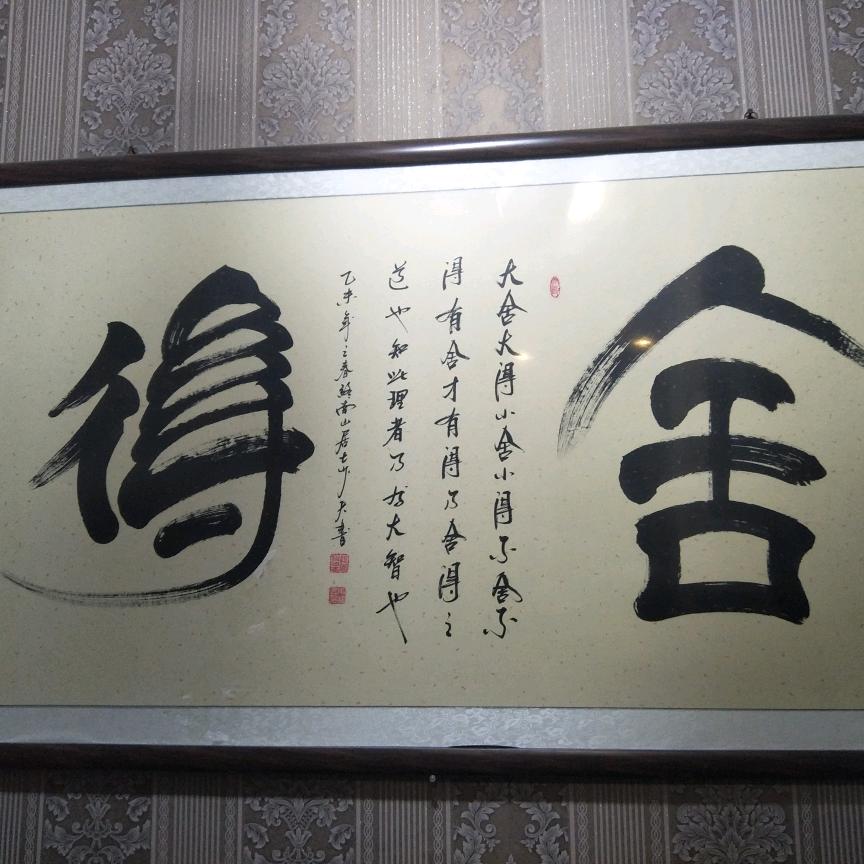 舍
大舍大得小舍小得不舍不
得有舍才有得乃舍得之
道也知此理者乃为大智也
乙未年之春 南山居士 书
得